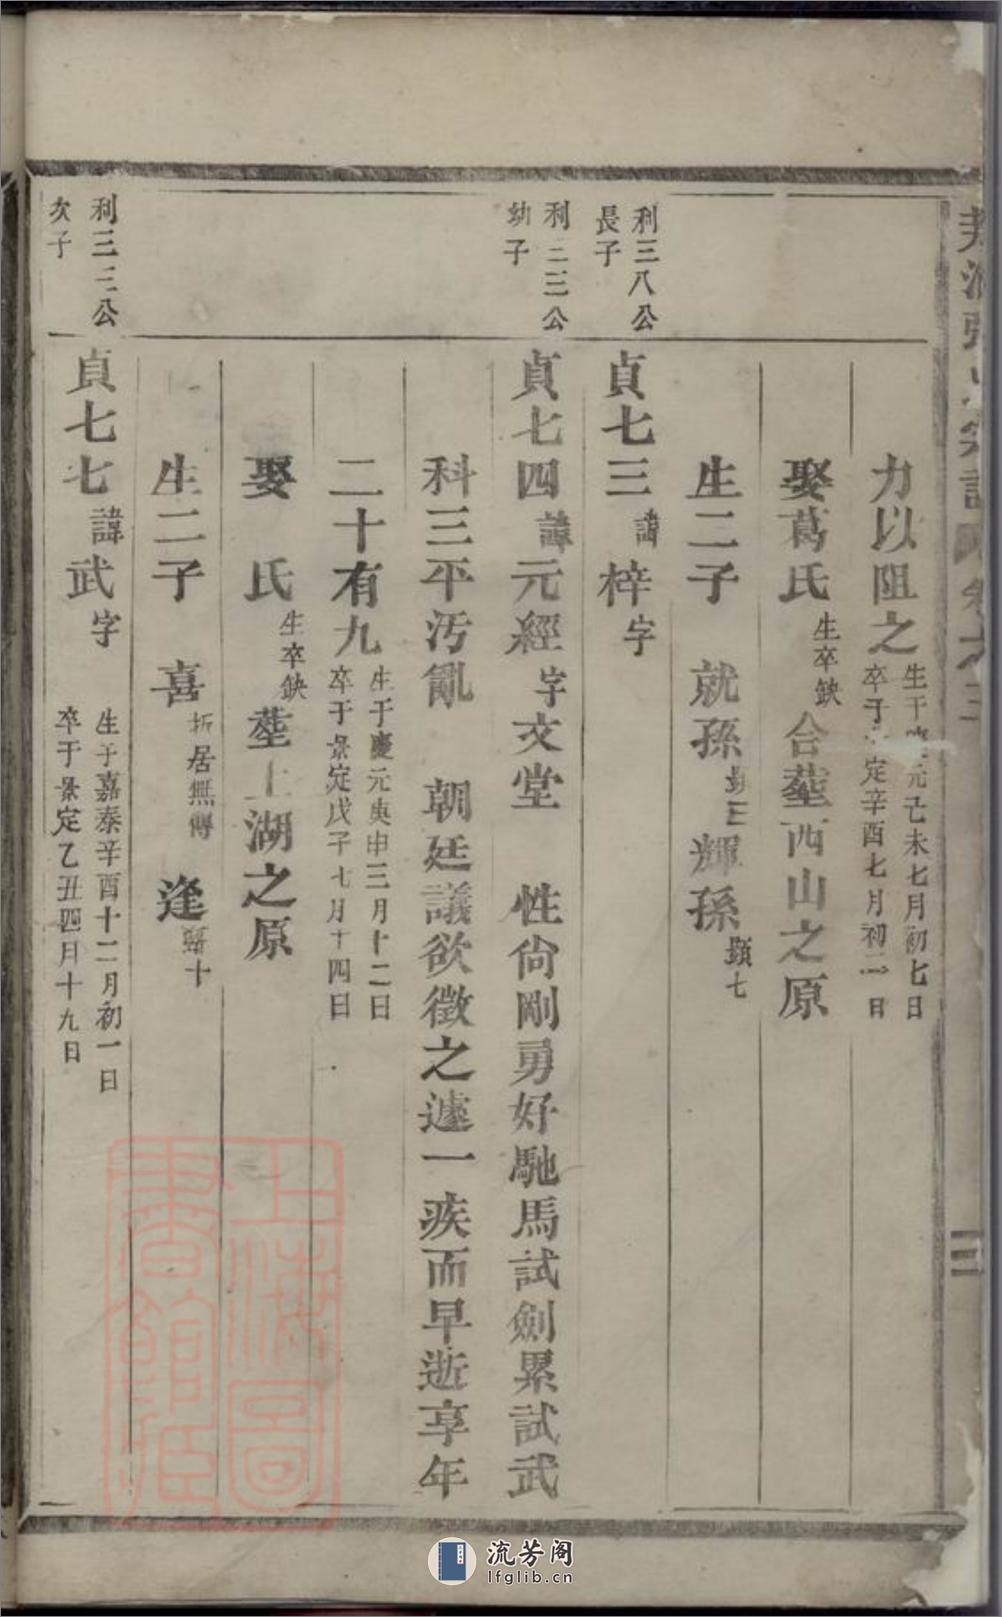 力以阻之
生于慶元己未七月初七日
卒于景定辛酉七月初二日
娶葛氏
生卒缺
合塟西山之原
生二子 就孫
輝孫
顕七
利三八公
長子
貞七三諱梓字
利三三公
幼子
貞七四諱元經字文堂 性尙剛勇好馳馬試劍累試武
科三平汚亂 朝廷議欲徵之遽一疾而早逝享年
二十有九
生于慶元庚申三月十二日
卒于景定戊子七月十四日
娶 氏
生卒缺
塟上湖之原
生二子 喜
析居無傳
逢
利三三公
次子
貞七七諱武字
生于嘉泰辛酉十二月初一日
卒于景定乙丑四月十九日
上海圖書館藏
流芳阁
lfglib.cn